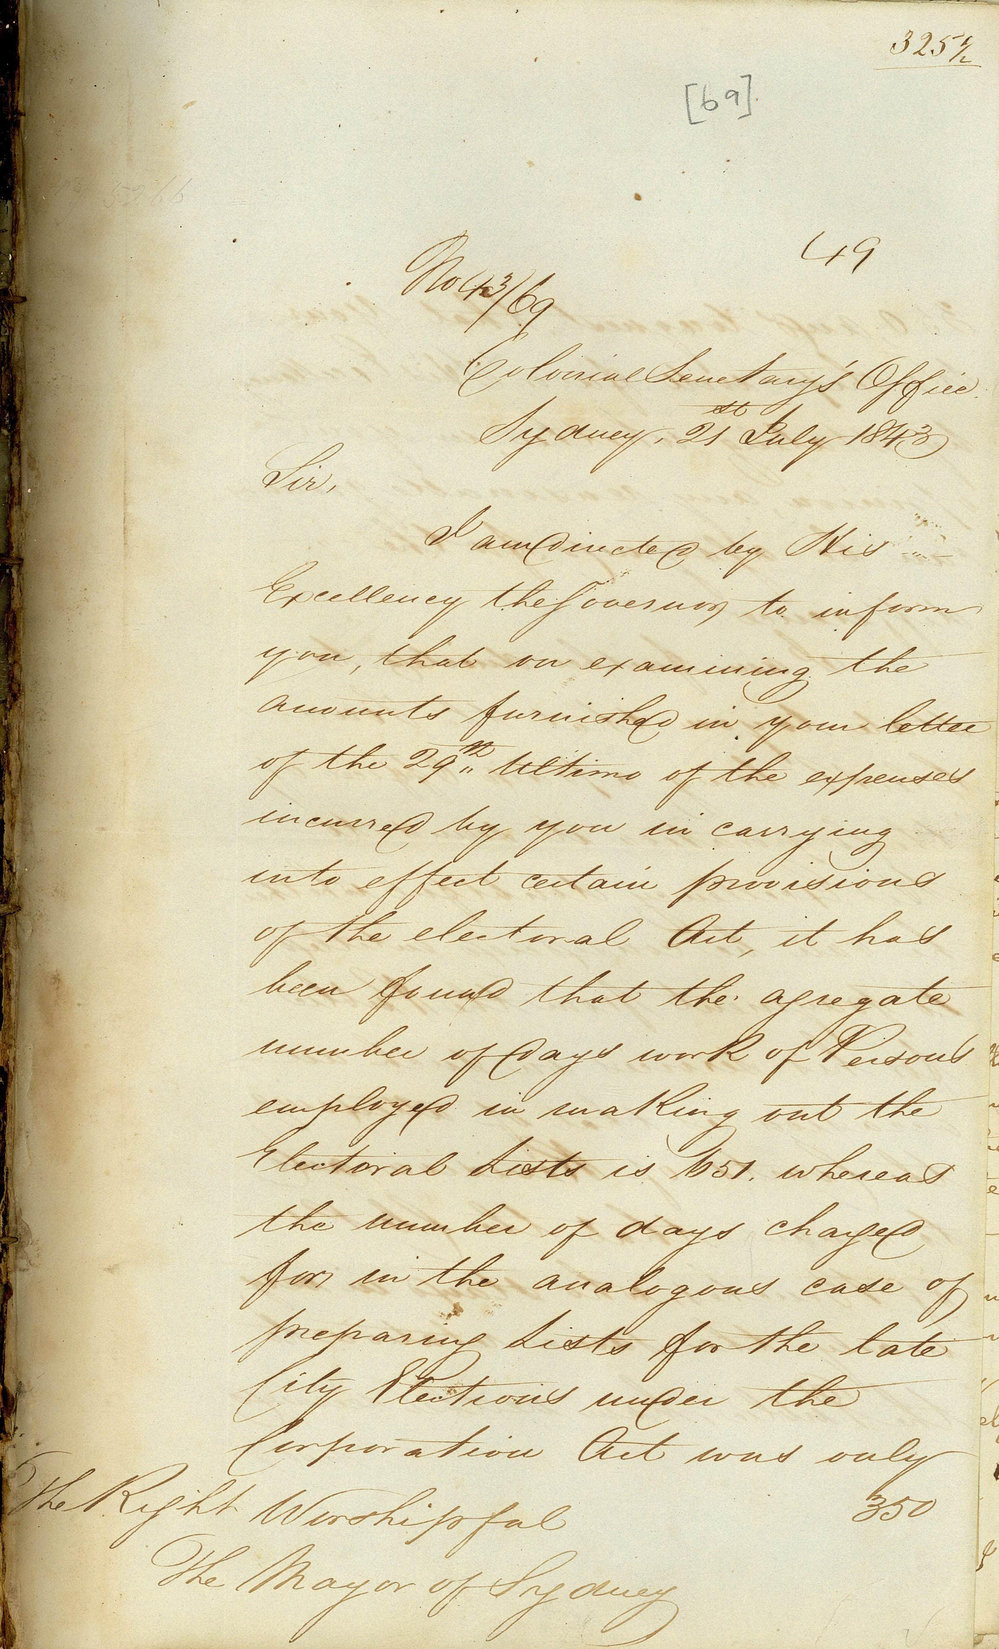 325 1/2
[69]
49
No 43/69
Colonial Secretary's Office
Sydney, 21st July 1843
Sir,
I am directed by His
Excellency the Governor, to inform
you, that on examining the
amounts furnished in your letter
of the 29th Ultimo of the expenses
incurred by you in carrying
into effect certain provisions
of the electoral Act, it has
been found that the agregate
number of days work of Persons
employed in making out the
Electoral Lists is 651. whereas
the number of days charged
for, in the analogous case of
preparing Lists for the late
City Elections under the
Corporation Act was only
350
The Right Worshipful
The Mayor of Sydney